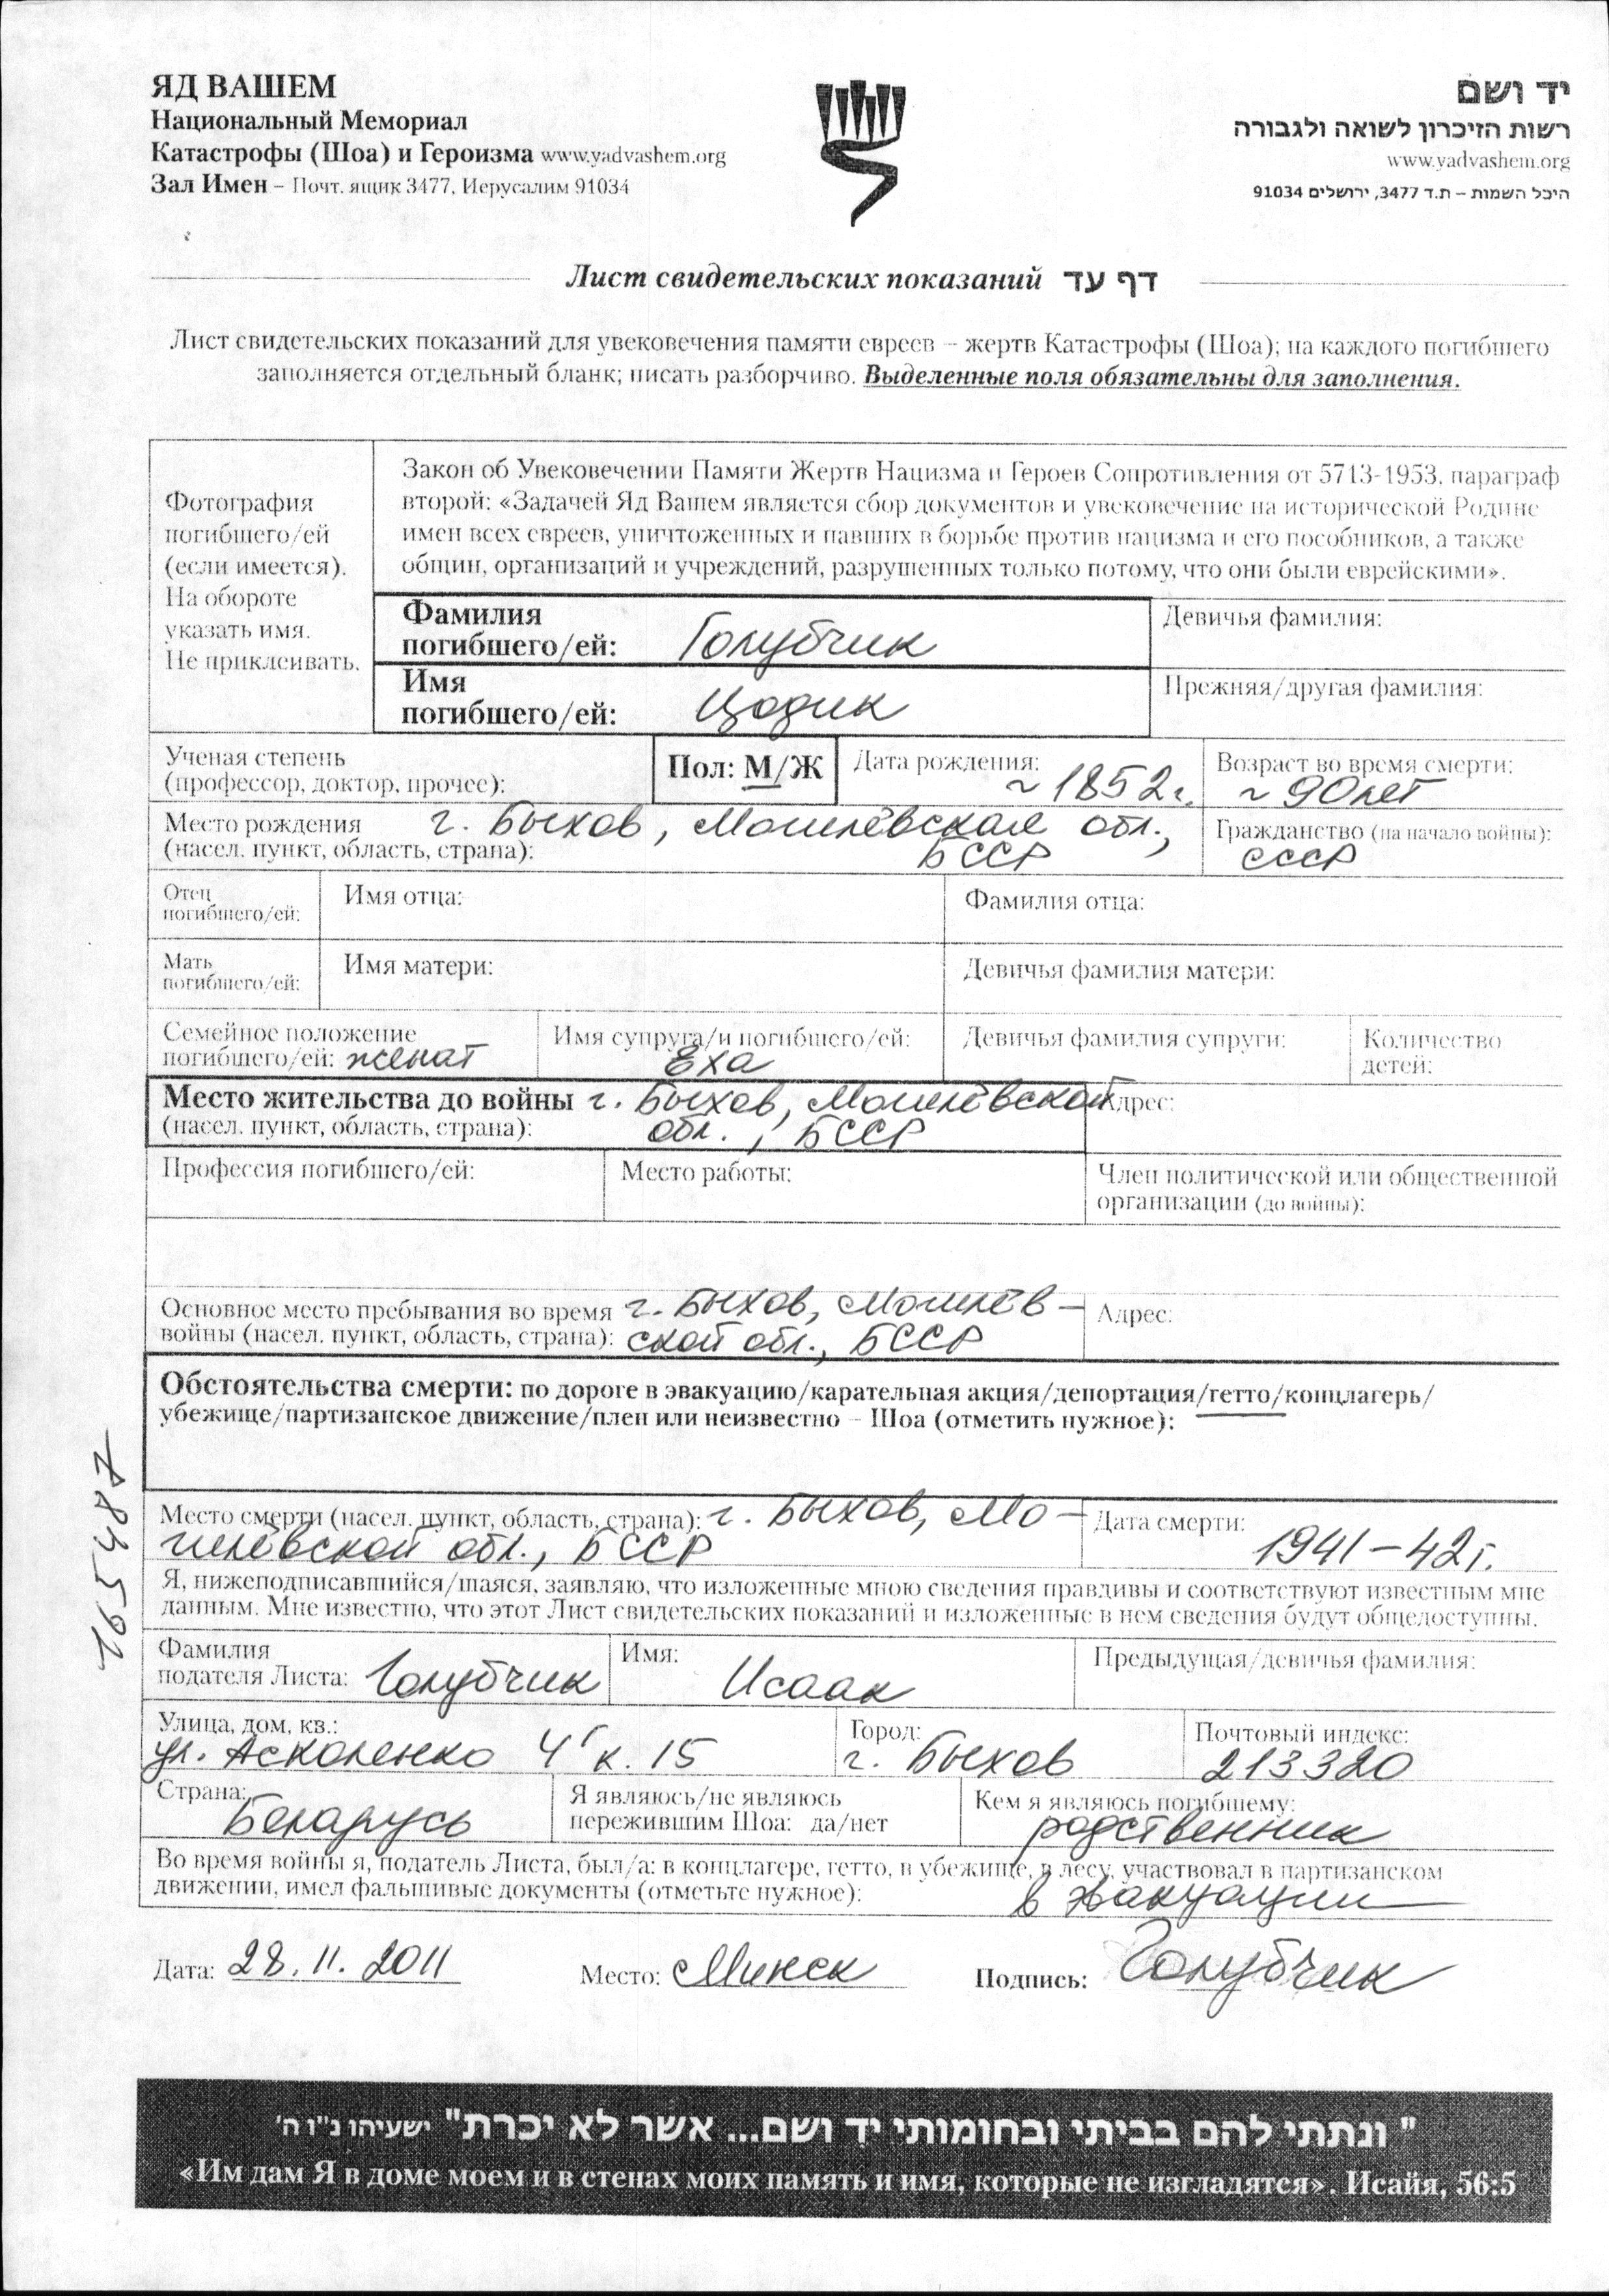 ЯД ВАШЕМ
Национальный Мемориал
Катастрофы (Шоа) и Героизма www.yadvashem.org
Зал Имен – Почт. ящик 3477, Иерусалим 91034
יד ושם
רשות הזיכרון לשואה ולגבורה
www.yadvashem.org
היכל השמות – ת.ד 3477, ירושלים 91034
Лист свидетельских показаний דף עד
Лист свидетельских показаний для увековечения памяти евреев – жертв Катастрофы (Шоа); на каждого погибшего
заполняется отдельный бланк; писать разборчиво. Выделенные поля обязательны для заполнения.
Фотография
погибшего/ей
(если имеется).
На обороте
указать имя.
Не приклеивать.
Закон об Увековечении Памяти Жертв Нацизма и Героев Сопротивления от 5713-1953, параграф
второй: «Задачей Яд Вашем является сбор документов и увековечение на исторической Родине
имен всех евреев, уничтоженных и павших в борьбе против нацизма и его пособников, а также
общин, организаций и учреждений, разрушенных только потому, что они были еврейскими».
Фамилия
погибшего/ей: Голубчик
Девичья фамилия:
Имя
погибшего/ей: Цодик
Прежняя/другая фамилия:
Ученая степень
(профессор, доктор, прочее):
Пол: М/Ж
Дата рождения:
~ 1852 г.
Возраст во время смерти:
~ 90 лет
Место рождения г. Быхов, Могилёвская обл.,
(насел. пункт, область, страна): БССР
Гражданство (на начало войны):
СССР
Отец
погибшего/ей:
Имя отца:
Фамилия отца:
Мать
погибшего/ей:
Имя матери:
Девичья фамилия матери:
Семейное положение
погибшего/ей: женат
Имя супруга/и погибшего/ей:
Еха
Девичья фамилия супруги:
Количество
детей:
Место жительства до войны г. Быхов, Могилёвской
(насел. пункт, область, страна): обл., БССР
Адрес:
Профессия погибшего/ей:
Место работы:
Член политической или общественной
организации (до войны):
Основное место пребывания во время г. Быхов, Могилёв-
войны (насел. пункт, область, страна): ской обл., БССР
Адрес:
Обстоятельства смерти: по дороге в эвакуацию/карательная акция/депортация/гетто/концлагерь/
убежище/партизанское движение/плен или неизвестно – Шоа (отметить нужное):
165487
Место смерти (насел. пункт, область, страна): г. Быхов, Мо-
гилёвской обл., БССР
Дата смерти:
1941–42 г.
Я, нижеподписавшийся/шаяся, заявляю, что изложенные мною сведения правдивы и соответствуют известным мне
данным. Мне известно, что этот Лист свидетельских показаний и изложенные в нем сведения будут общедоступны.
Фамилия
подателя Листа: Голубчик
Имя:
Исаак
Предыдущая/девичья фамилия:
Улица, дом, кв.:
ул. Асколенко 4г к. 15
Город:
г. Быхов
Почтовый индекс:
213320
Страна:
Беларусь
Я являюсь/не являюсь
пережившим Шоа: да/нет
Кем я являюсь погибшему:
родственник
Во время войны я, податель Листа, был/а: в концлагере, гетто, в убежище, в лесу, участвовал в партизанском
движении, имел фальшивые документы (отметьте нужное): в эвакуации
Дата: 28.11.2011
Место: Минск
Подпись: Голубчик
" ונתתי להם בביתי ובחומותי יד ושם... אשר לא יכרת" ישעיהו נ"ו ה'
«Им дам Я в доме моем и в стенах моих память и имя, которые не изгладятся». Исайя, 56:5